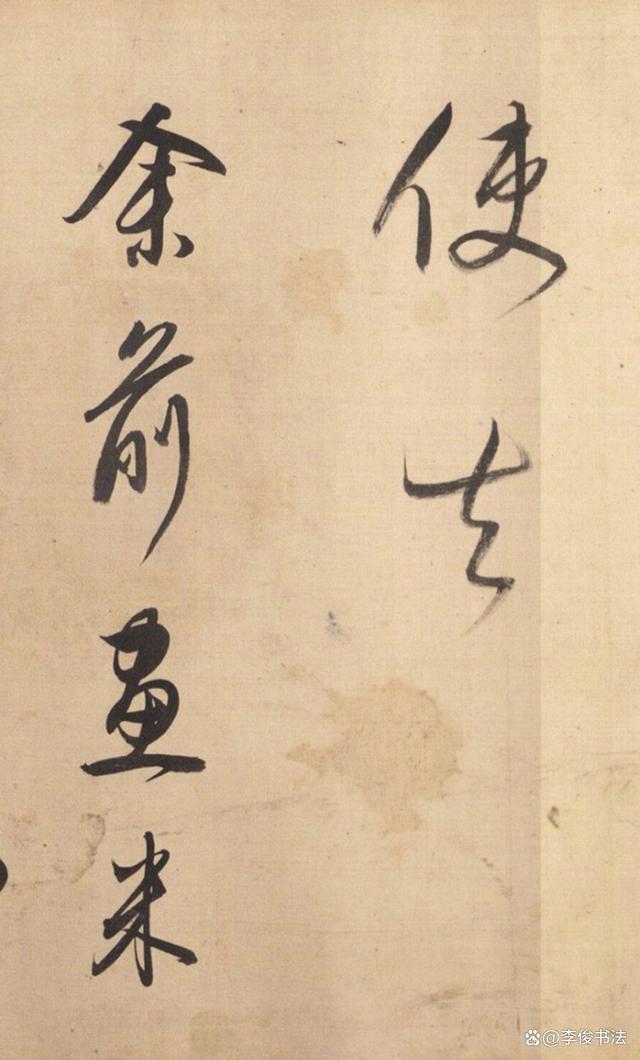 使去
余前畫米
@李俊书法